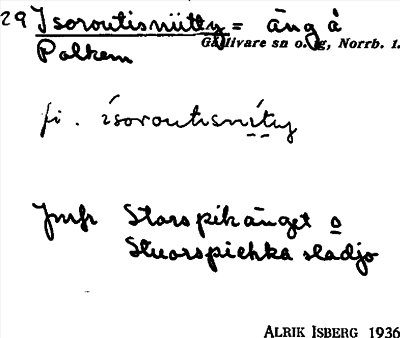 29 Isoroutisniitty = äng å
Gällivare sn o. tg, Norrb. l.
Palkem
fi. isoroutisnìty
Jmfr Storspikänget o
Stuorspichka sladjo
ALRIK ISBERG 1936